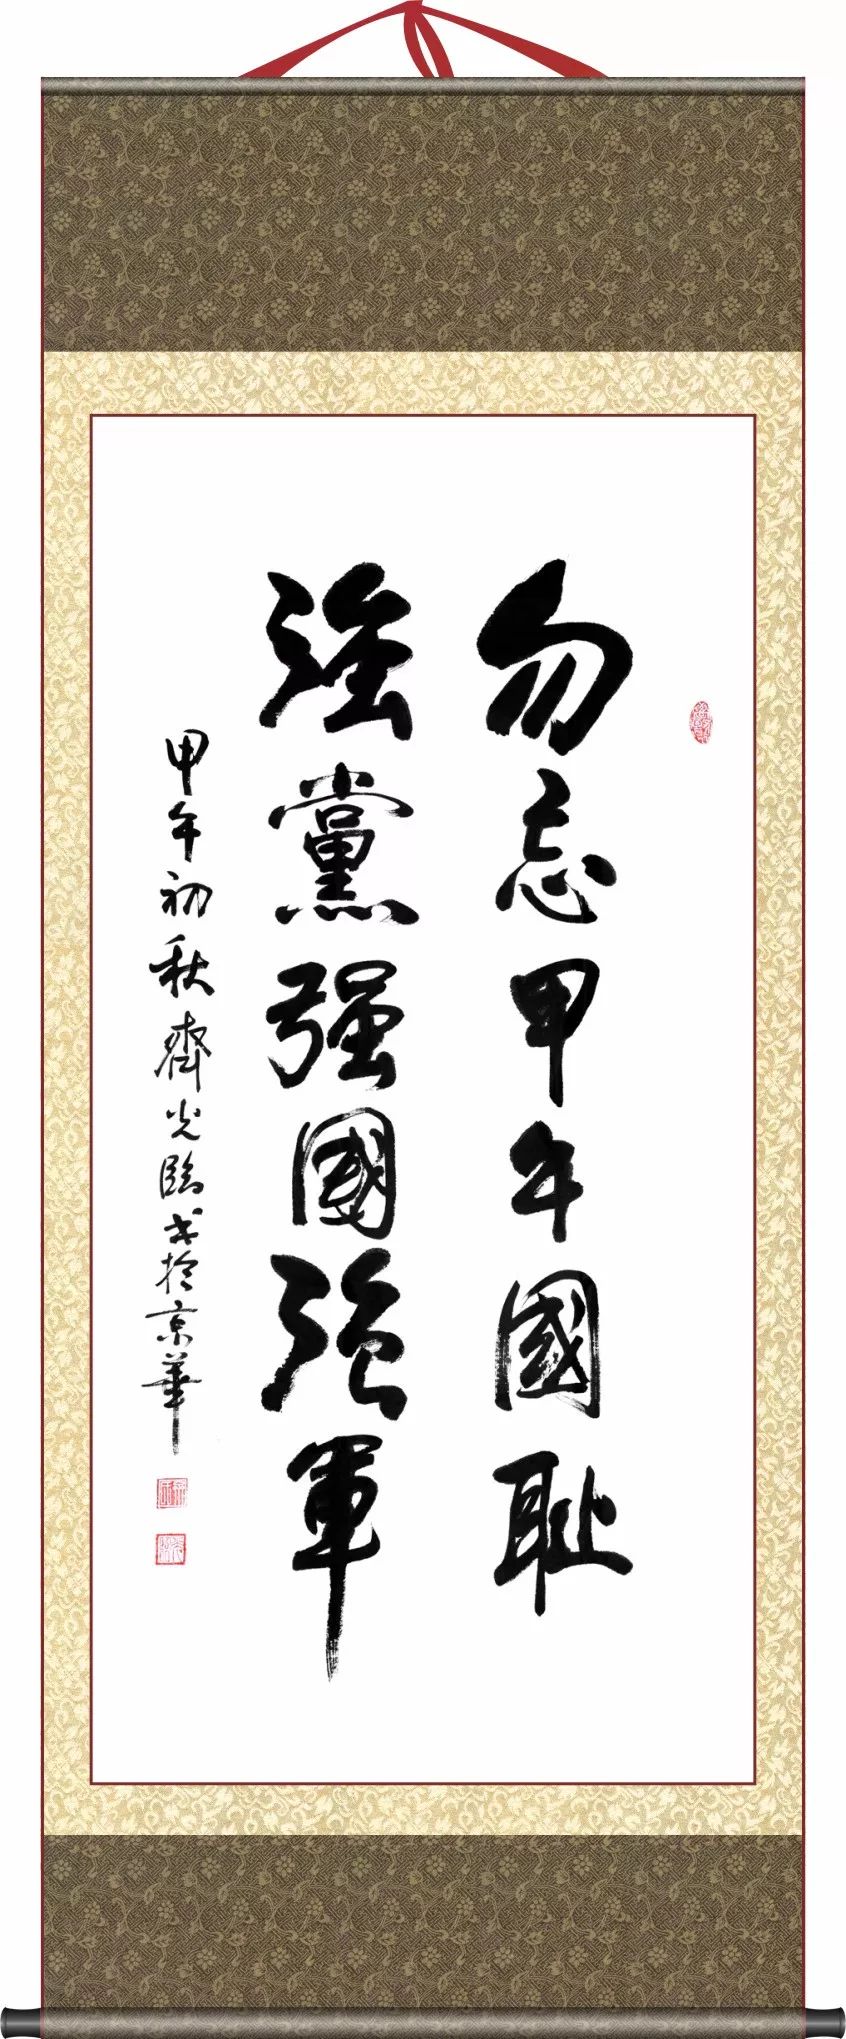 勿忘甲午國耻
強黨强國強軍
甲午初秋齊光臨书於京華